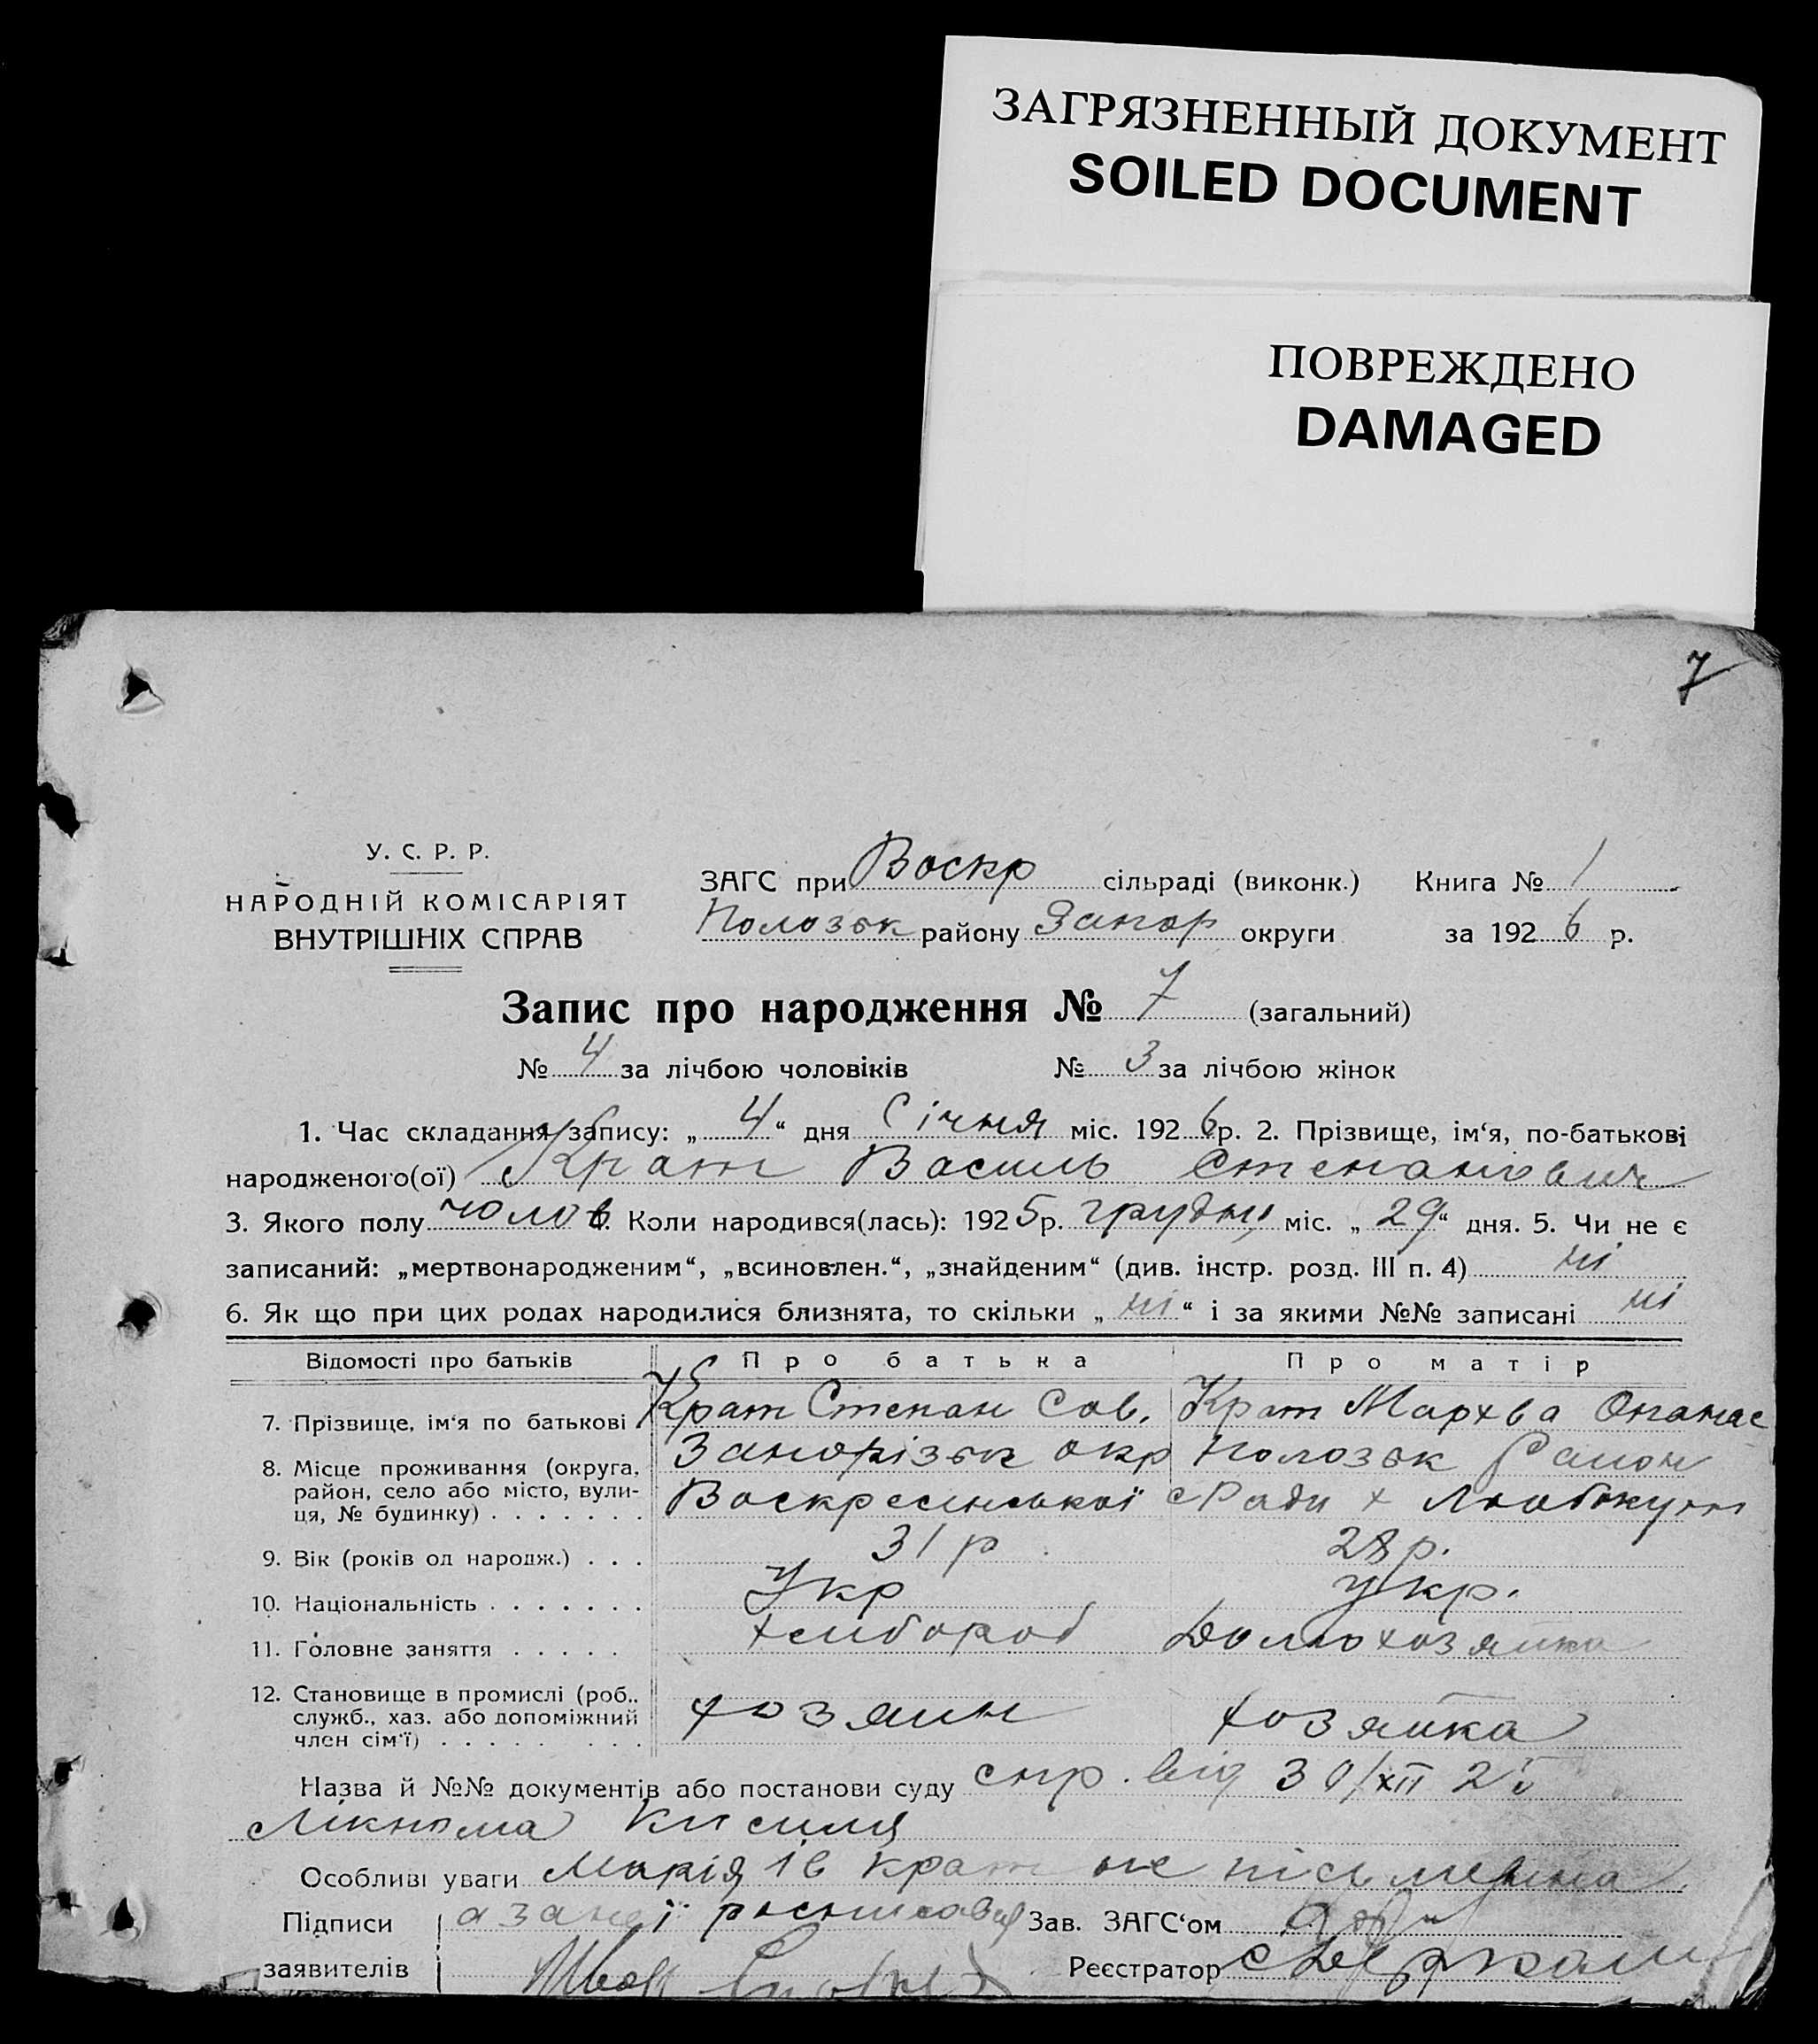 ЗАГРЯЗНЕННЫЙ ДОКУМЕНТ
SOILED DOCUMENT
ПОВРЕЖДЕНО
DAMAGED
7
У. С. Р. Р.
НАРОДНІЙ КОМІСАРІЯТ
ВНУТРІШНІХ СПРАВ
ЗАГС при Воскр сільраді (виконк.) Книга № 1
Полозьк району Запор округи за 1926 р.
Запис про народження № 7 (загальний)
№ 4 за лічбою чоловіків № 3 за лічбою жінок
1. Час складання запису: „4“ дня Січня міс. 1926 р. 2. Прізвище, ім‘я, по-батькові
народженого(ої) Крат Василь Степанович
3. Якого полу чолов. Коли народився(лась): 1925 р. грудня міс. „29“ дня. 5. Чи не є
записаний: „мертвонародженим“, „всиновлен.“, „знайденим“ (див. інстр. розд. III п. 4) ні
6. Як що при цих родах народилися близнята, то скільки „ні“ і за якими №№ записані ні
Відомості про батьків Про батька Про матір
7. Прізвище, ім‘я по батькові Крат Степан Сав. Крат Мархва Опанас
8. Місце проживання (округа, Запорізьк окр Полозьк Район
район, село або місто, вули- Воскресенської сРади х Любокут
ця, № будинку)
9. Вік (років од народж.) 31 р 28 р.
10. Національність Укр укр.
11. Головне заняття хлибороб Домохозяйка
12. Становище в промислі (роб., хозяин хозяйка
служб., хаз. або допоміжний
член сім‘ї)
Назва й №№ документів або постанови суду спр. від 30/XII 25
Кисиля
Особливі уваги Марія Ів Крат не письменна
Підписи а за неї росписавця Зав. ЗАГС‘ом
заявителів Реєстратор